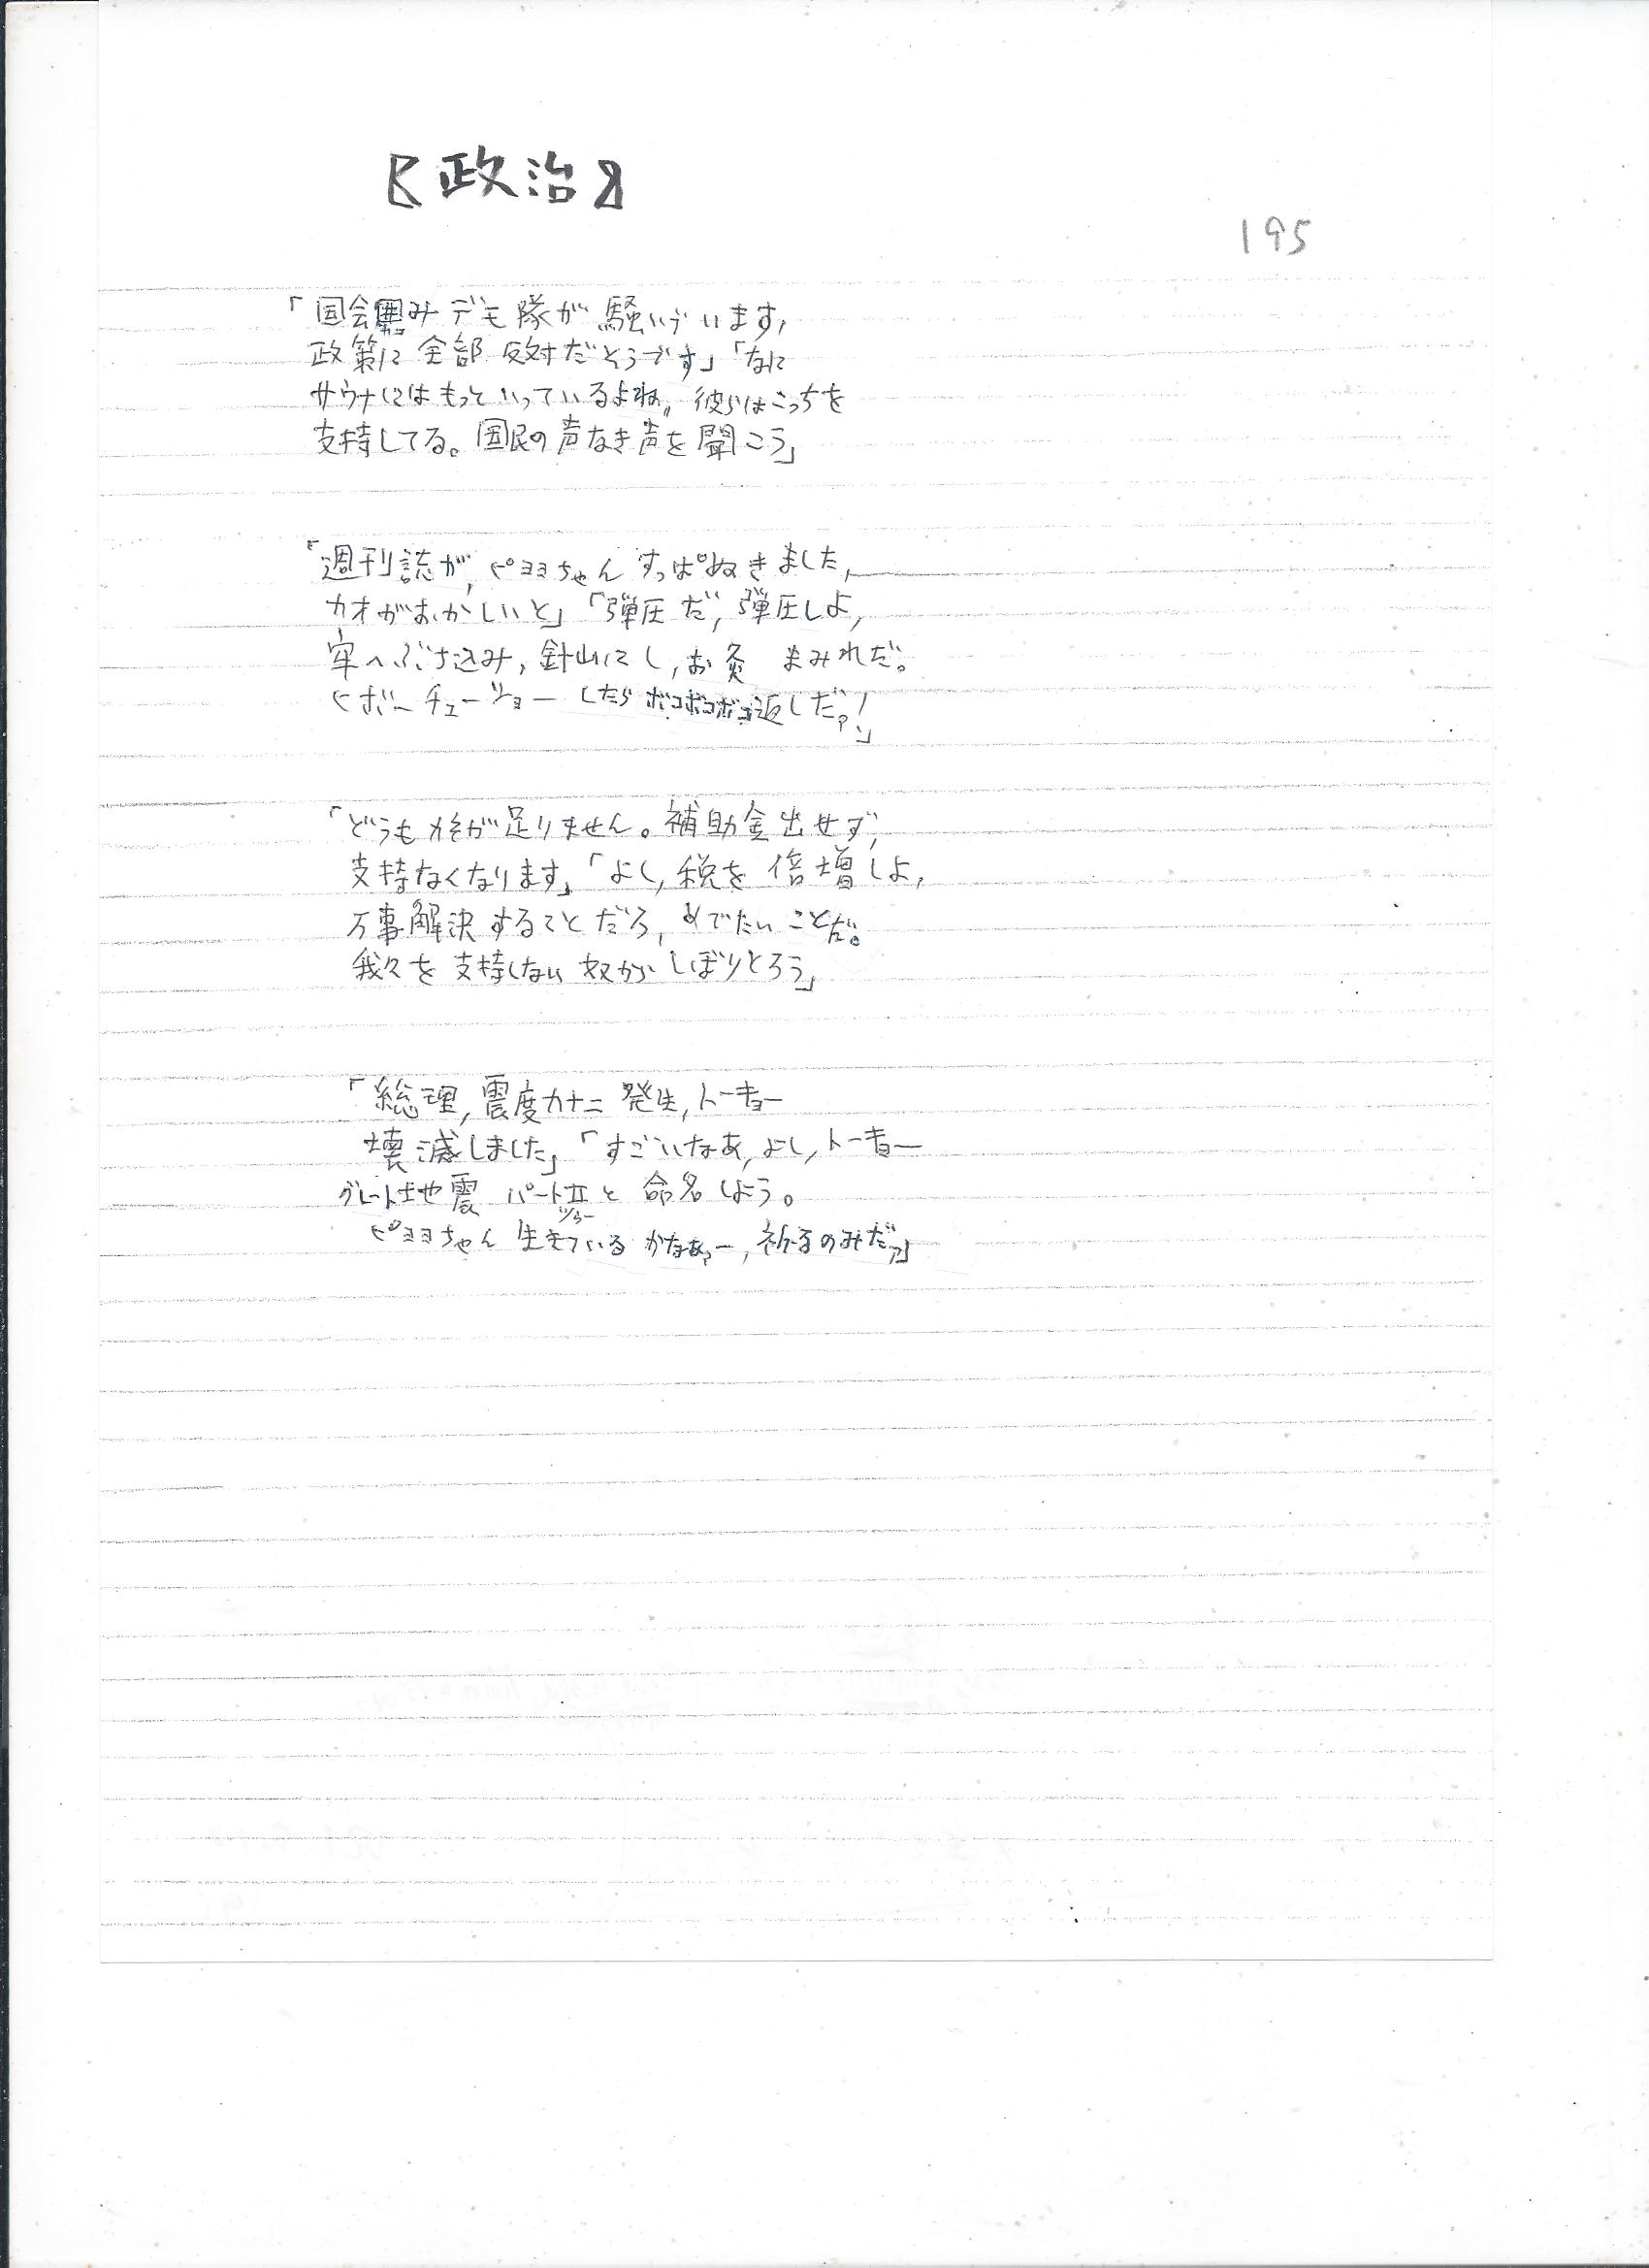 【政治】
195
「国会囲みデモ隊が騒いでいます,
政策に全部反対だそうです」「なに
サウナにはもっといっているよね。彼らはこっちを
支持してる。国民の声なき声を聞こう」
「週刊誌が,ピヨヨちゃんすっぱぬきました,
カオがおかしいと」「弾圧だ,弾圧しよ,
牢へぶち込み,針山にし,お灸 まみれだ。
ヒボーチューショーしたらボコボコボコ返しだァ!」
「どうもカネが足りません。補助金出せず,
支持なくなります」「よし,税を倍増しよ,
万事解決することだろ,めでたいことだ。
我々を支持しない奴からしぼりとろう」
「総理,震度カナニ発生,トーキョー
壊滅しました」「すごいなあ,よし,トーキョー
グレート地震 パートⅡと命名しよう。
ツゥー
ピヨヨちゃん生きているかなあァー,祈るのみだァ」